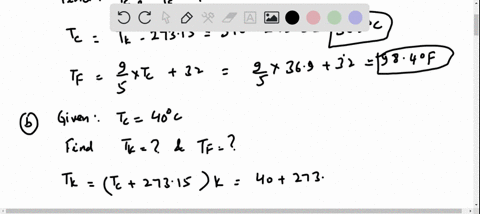 Tc = Tk - 273.15 =
TF = 9/5 × Tc + 32 = 9/5 × 36.9 + 32 = 98.4°F
(b) Given: Tc = 40°C
Find Tk = ? & TF = ?
Tk = (Tc + 273.15) K = 40 + 273.